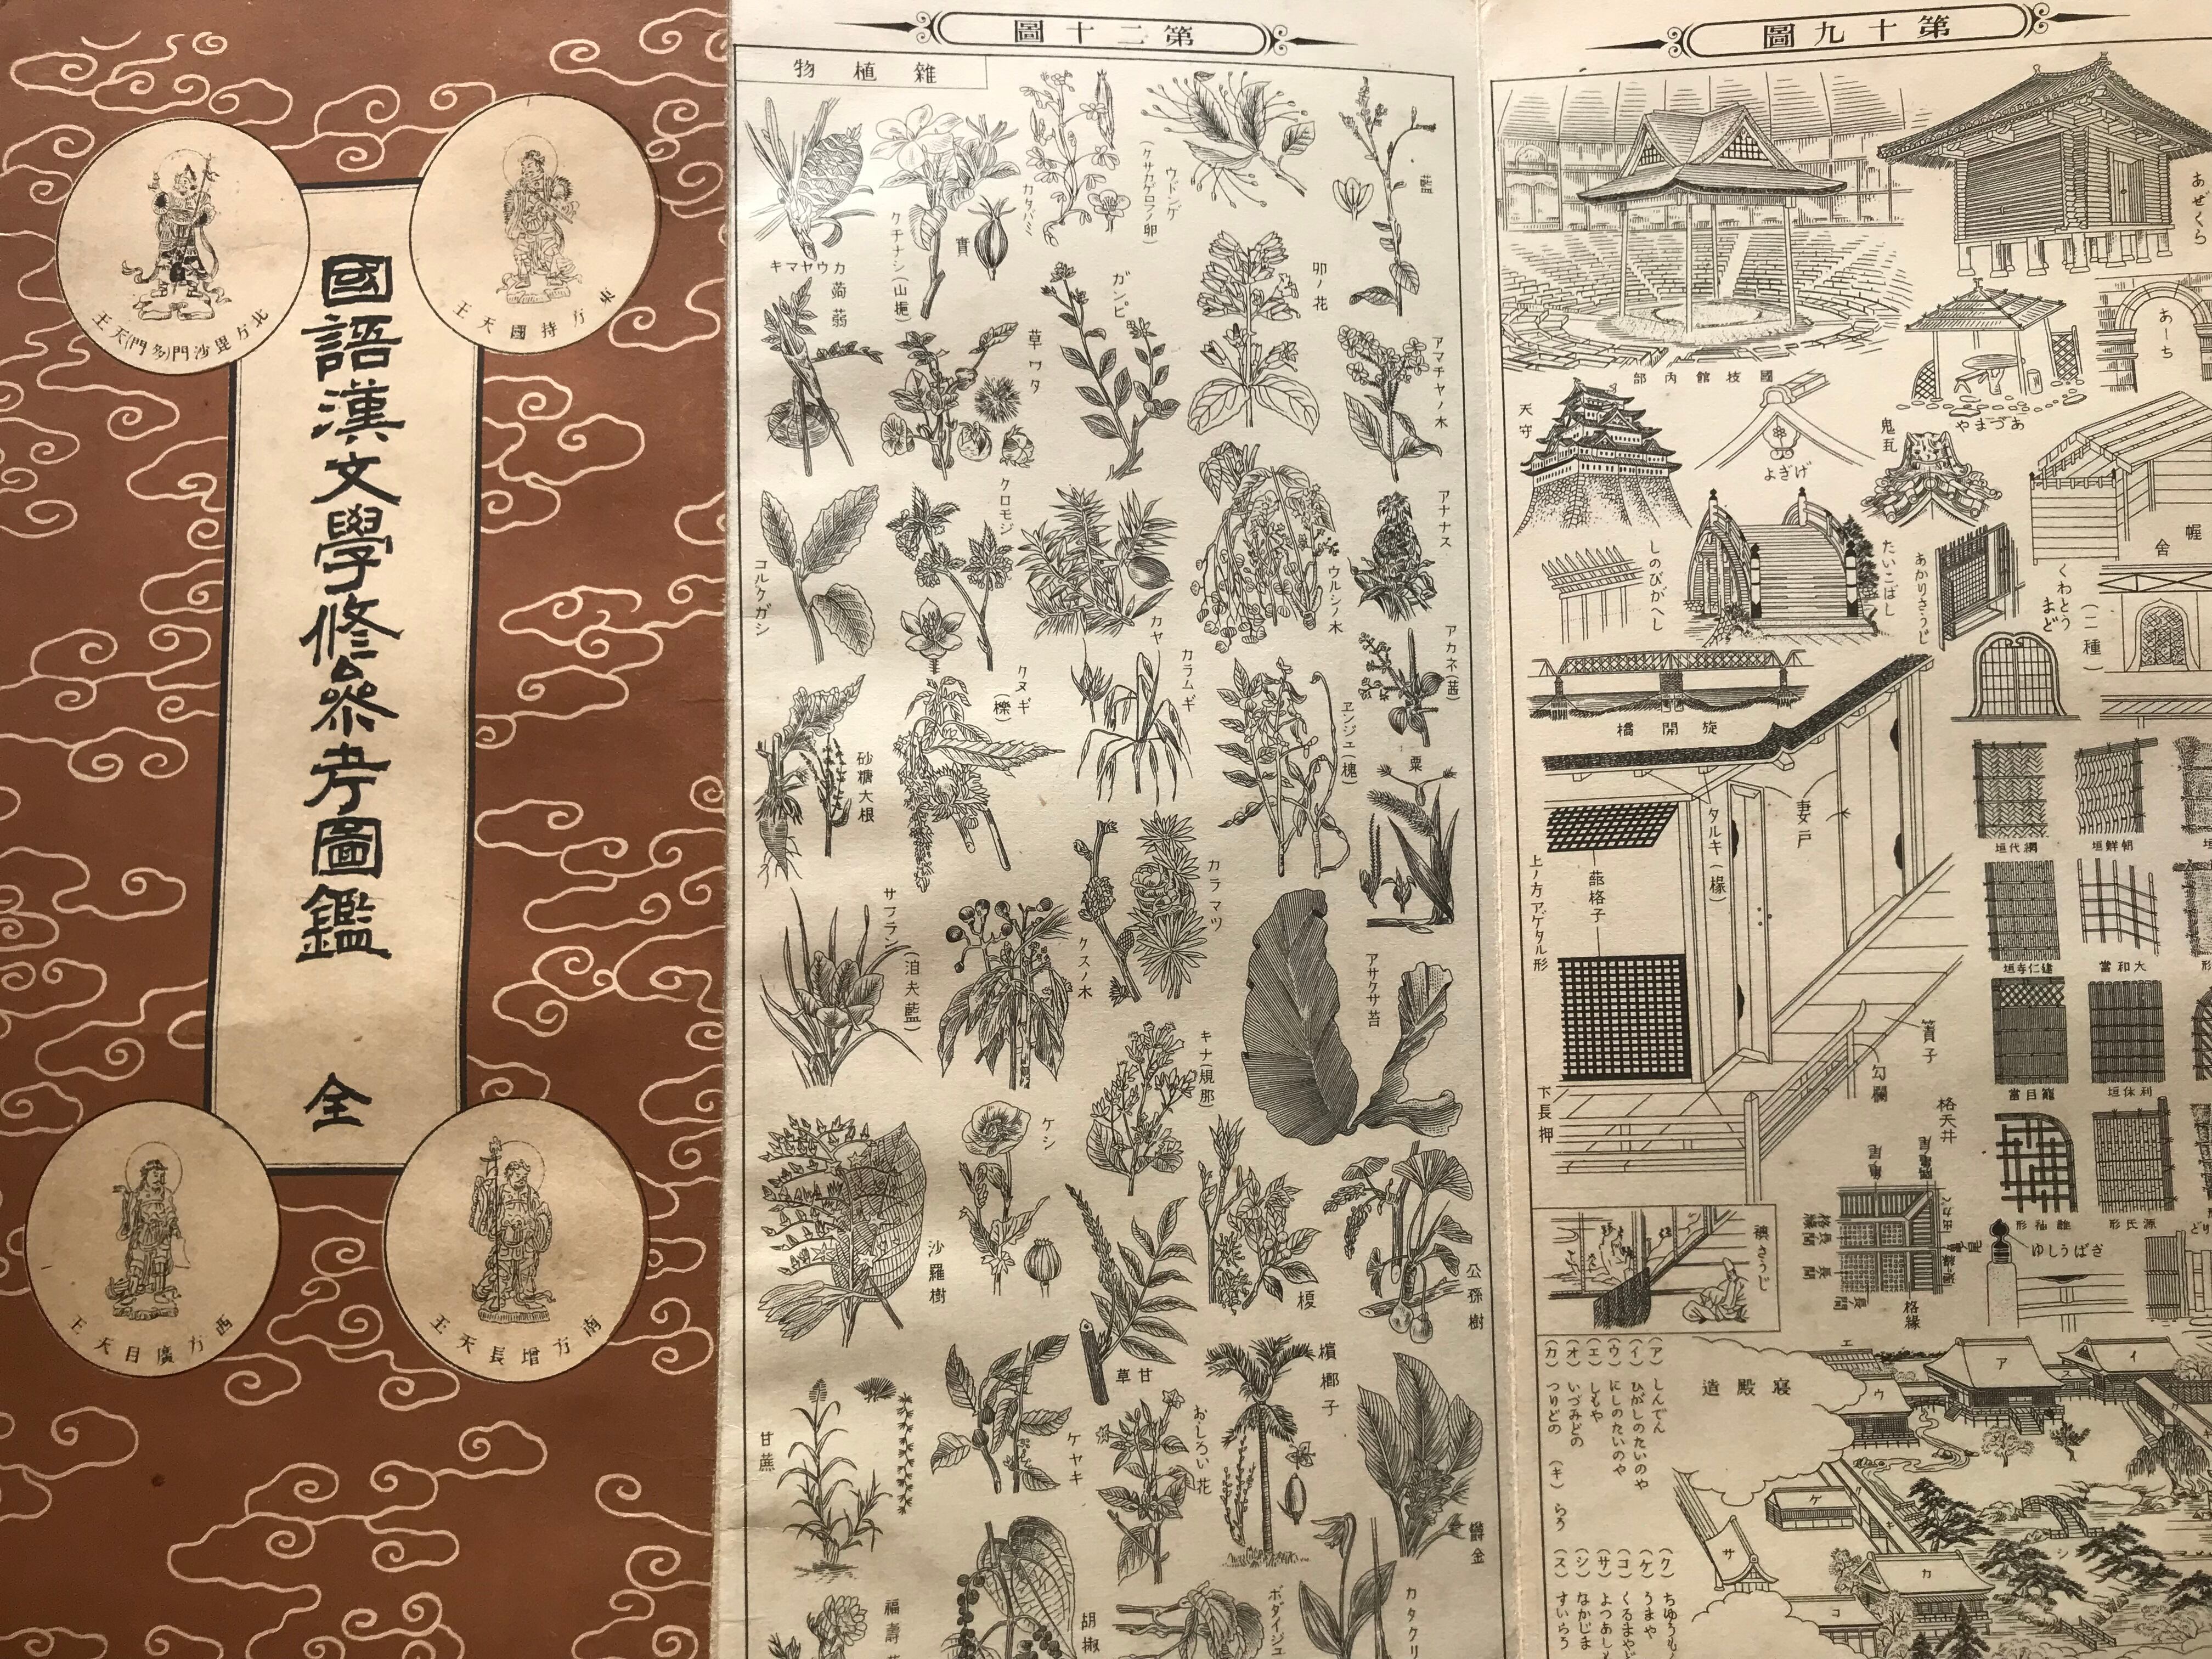 國語漢文學修參考圖鑑 全
北方毘沙門(多門)天王
東方持國天王
西方廣目天王
南方增長天王
第二十圖
雜植物
藍
ウドンゲ
(クサカゲロフノ卵)
カタバミ
クチナシ(山梔)
實
カウヤマキ
卯ノ花
アマチヤノ木
ガンピ
草ワタ
蒟蒻
アナナス
ウルシノ木
カヤ
クロモジ
コルクガシ
アカネ(茜)
ヱンジユ(槐)
カラムギ
クヌギ
(櫟)
砂糖大根
粟
カラマツ
クスノ木
サフラン(泪夫藍)
アサクサ苔
キナ(規那)
ケシ
沙羅樹
公孫樹
榎
甘草
ケヤキ
甘蔗
檳榔子
おしろい花
鬱金
カタクリ
ボダイジユ
胡椒
福壽
第十九圖
國技館內部
あぜくら
あーち
あづまや
天守
げぎよ
鬼瓦
幄舍
しのびがへし
たいこばし
あかりさうじ
くわとうまど
(二種)
旋開橋
タルキ(椽)
妻戶
蔀格子
上ノ方アゲタル形
下長押
簀子
勾欄
網代垣
朝鮮垣
建仁寺垣
大和當
籠目當
利休垣
雛袖形
源氏形
格天井
龜尾
格緣
襖さうじ
ぎばうしゆ
寢殿造
(ア) しんでん
(イ) ひがしのたいのや
(ウ) にしのたいのや
(エ) しもや
(オ) いづみどの
(カ) つりどの
(キ) らう
(ク) ちゆうも
(ケ) うまや
(コ) くるまやど
(サ) よつあし
(シ) なかじま
(ス) すいらう